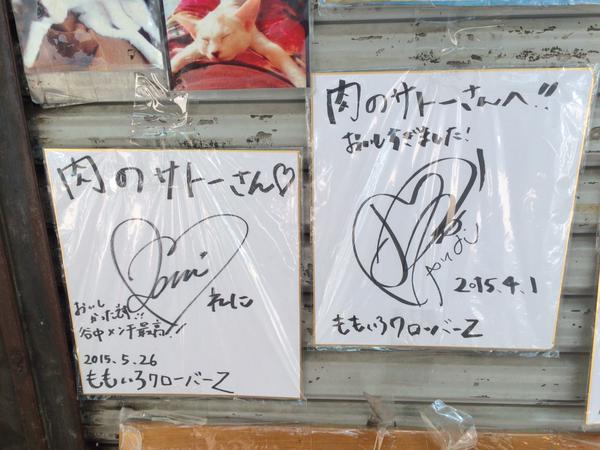 肉のサトーさん♡
れに
おいし
かった部!!
谷中メンチ最高!!
2015.5.26
ももいろクローバーZ
肉のサトーさんへ!!
おいしすぎました!
2015.4.1
ももいろクローバーZ